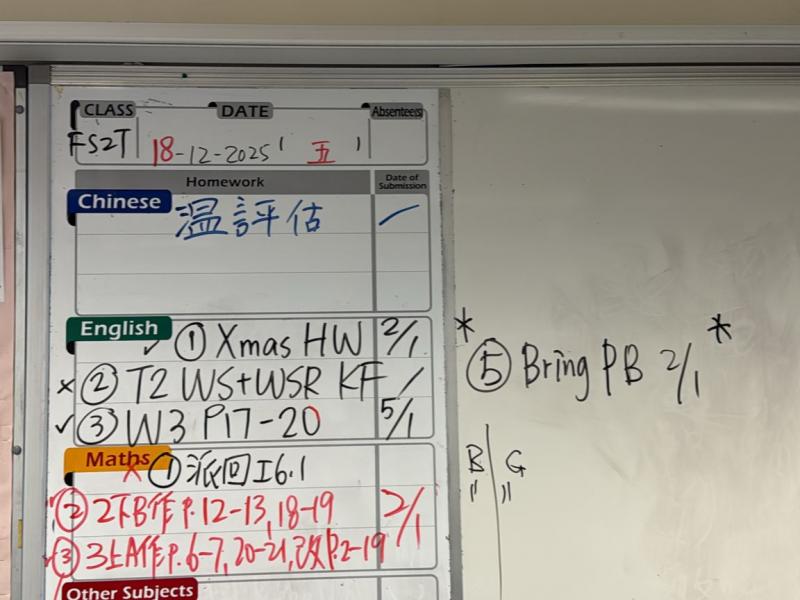 CLASS DATE Absentee(s)
FS2T 18-12-2025 ( 五 )
Homework Date of Submission
Chinese
温評估
English
✓ ① Xmas HW 2/1
× ② T2 WS+WSR KF /
✓ ③ W3 P17-20 5/1
* ⑤ Bring PB 2/1 *
B G
" "
Maths ① 派回 I6.1
② 2下B作 P.12-13, 18-19 2/1
③ 3上A作 P.6-7, 20-21, 改P.2-19
Other Subjects